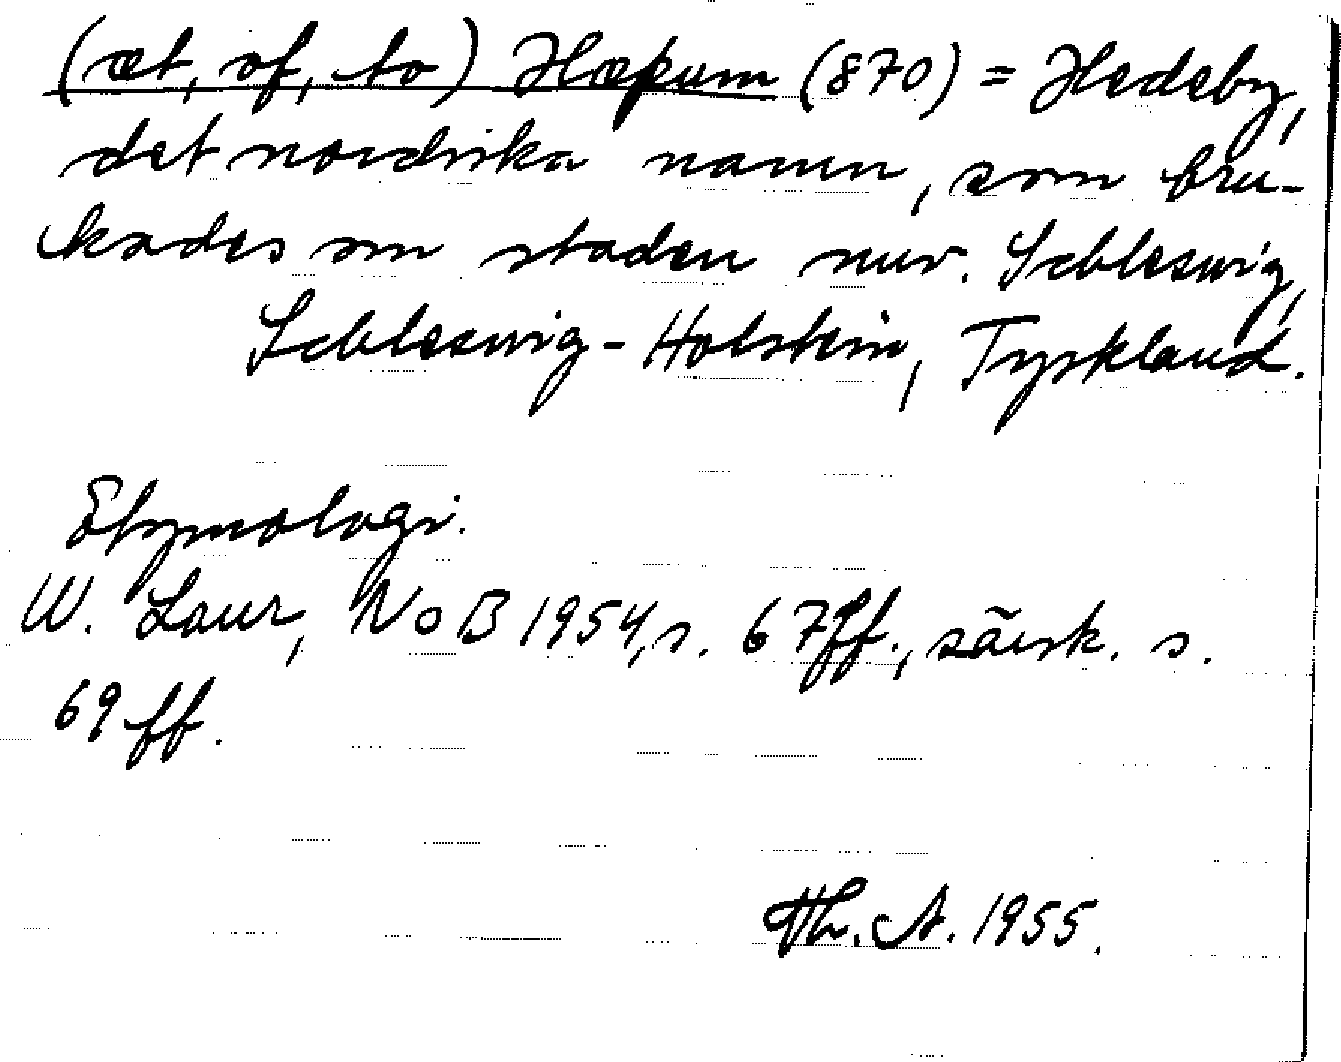 (æt, of, to) Hæþum (870) = Hedeby,
det nordiska namn, som bru-
kades om staden nuv. Schleswig,
Schleswig-Holstein, Tyskland.
Etymologi.
W. Laur, NoB 1954, s. 67ff., särsk. s.
69ff.
Th. A. 1955.